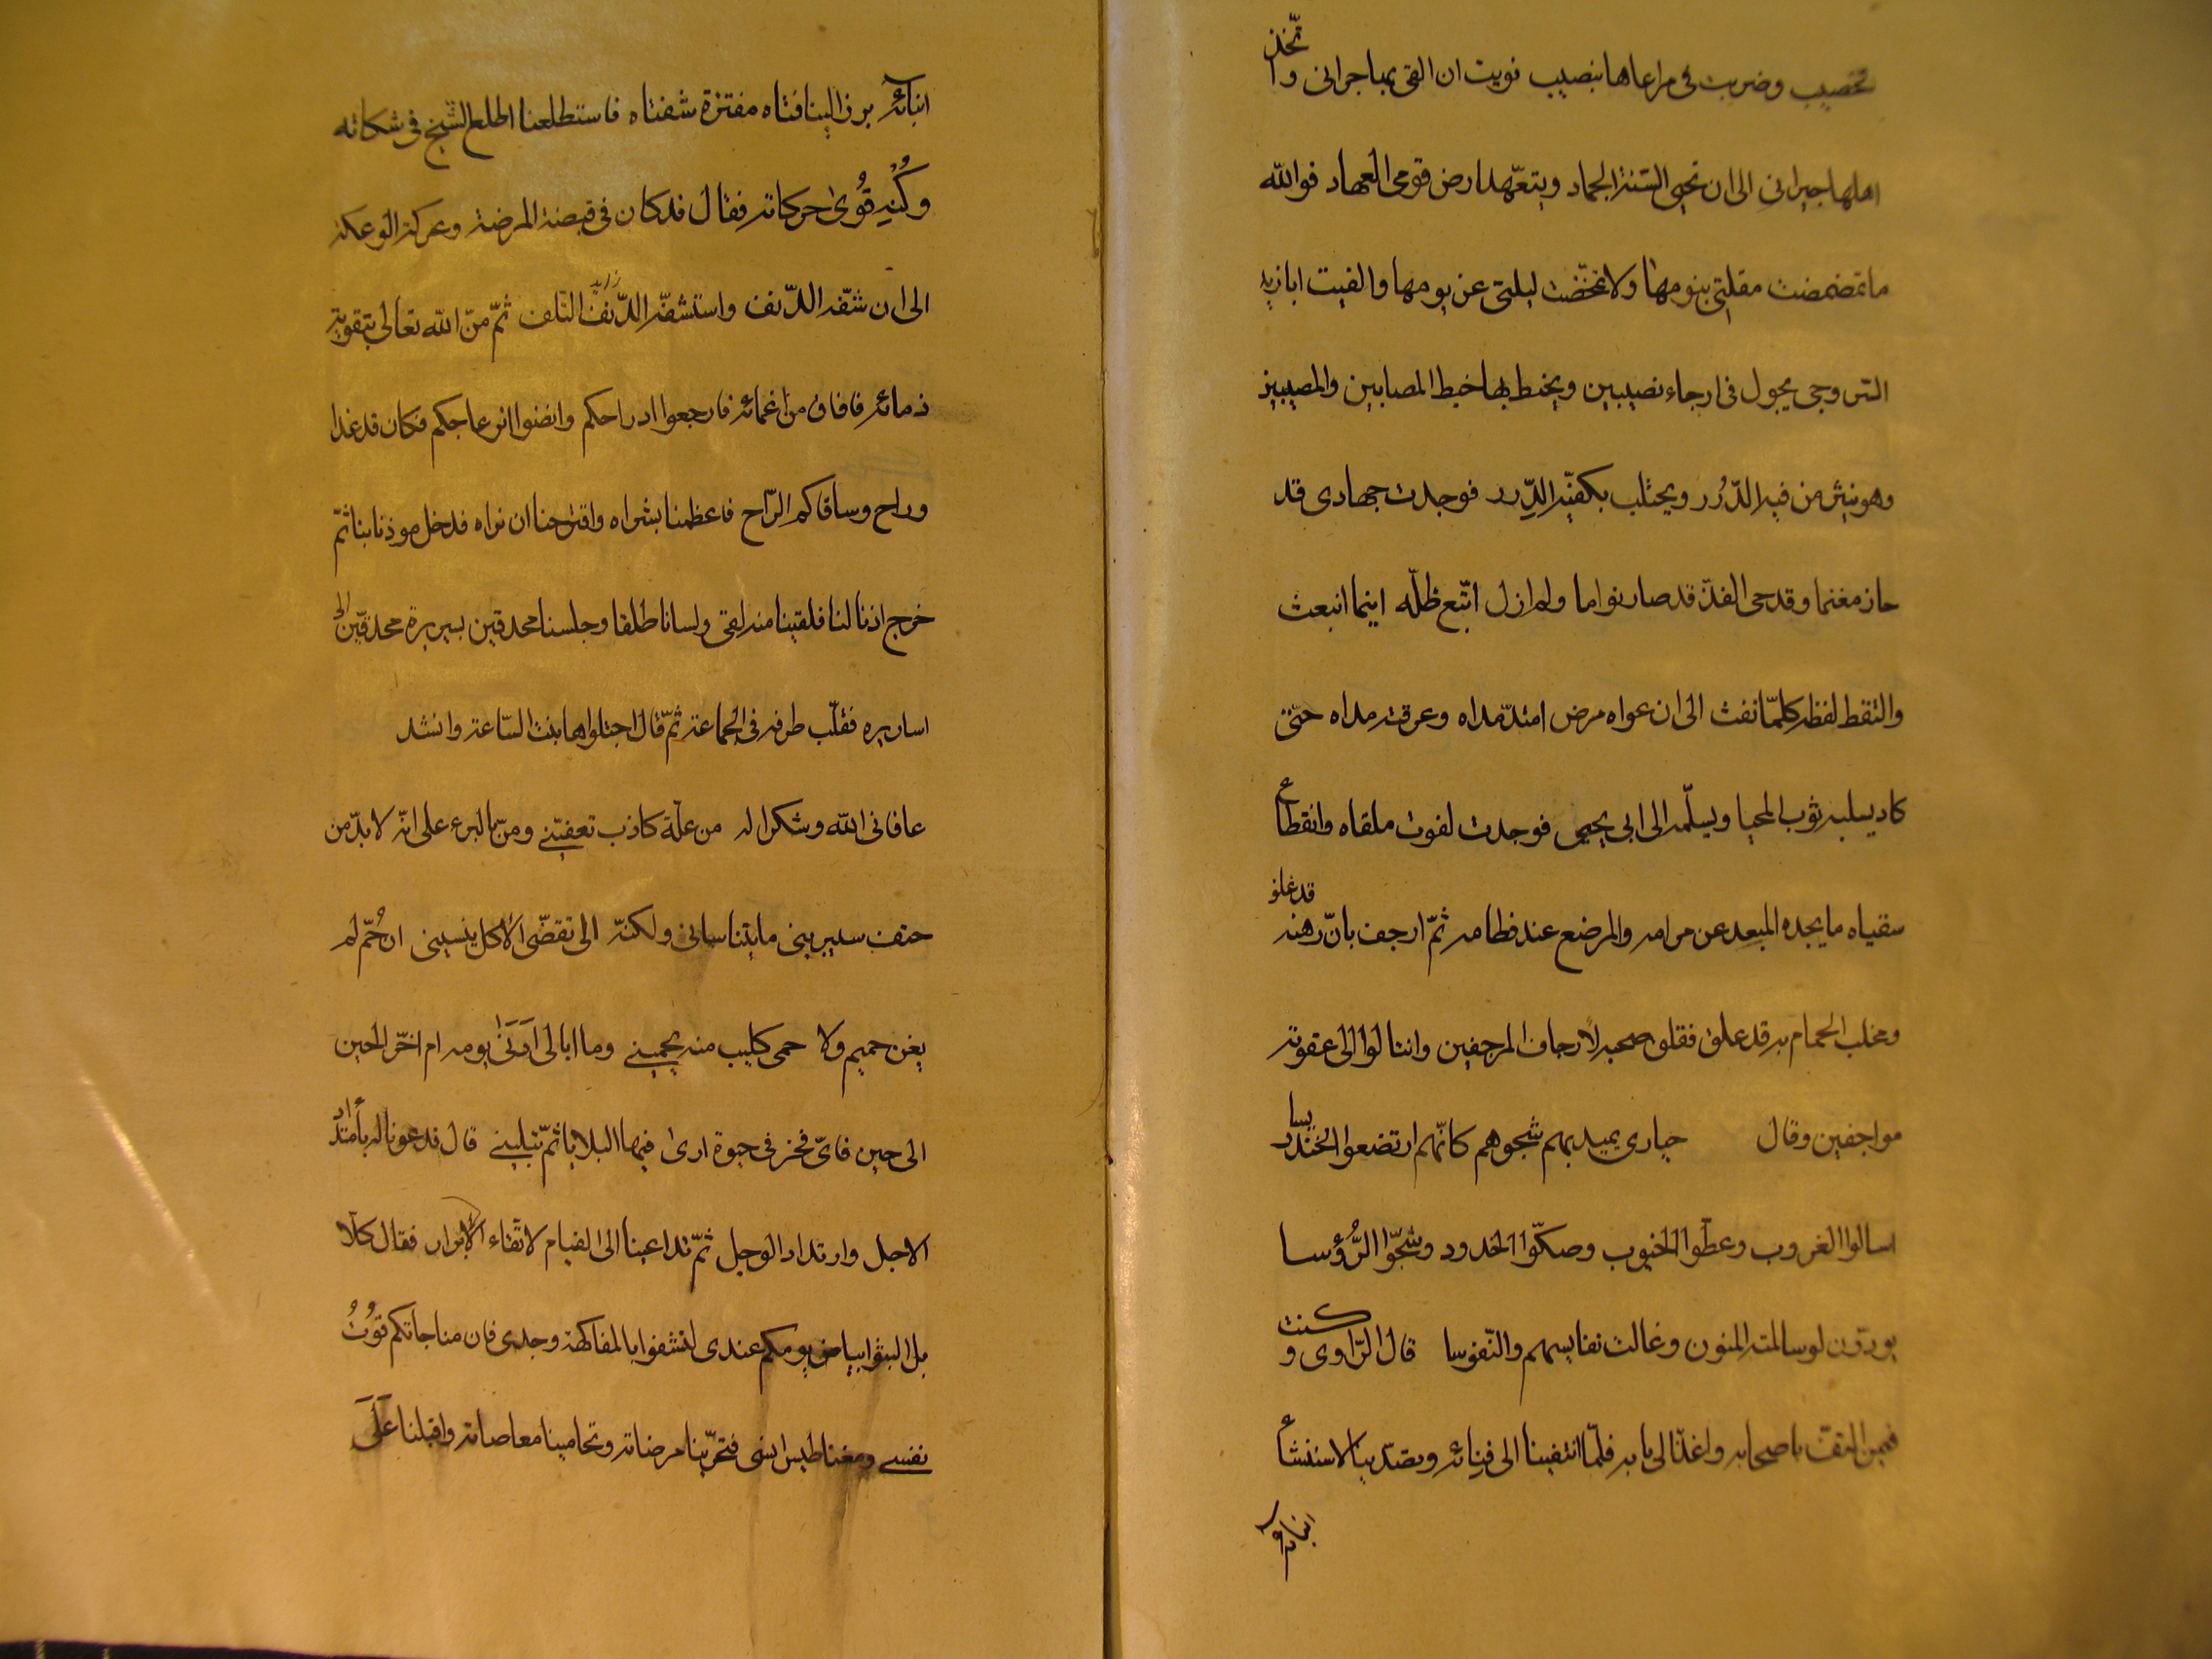 مخصيب وضربت فى مراعاها بنصيب نويت ان القى بها جرانى واتّخذ
اهلها جيرانى الى ان تحيى السّنة الجماد ويتعّهد ارض قومى العهاد فوالله
ما تمضمضت مقلتى بنومها ولا تمخّضت ليلتى عن يومها والفيت ابا زيد
السّروجى يجول فى ارجاء نصيبين ويخبط بها خبط المصابين والمصيبين
وهو ينثر من فيه الدّرر ويحتلب بكفّيه الدِّرر فوجدت جهادى قد
حاز مغنما وقدحى الفذّ قد صار تواما ولم ازل اتّبع ظلّه اينما انبعث
والتقط لفظه كلّما نفث الى ان عراه مرض امتدّ مداه وعرقته مداه حتّى
كاد يسلبه ثوب المحيا ويسلّمه الى ابى يحيى فوجدت لفوت ملقاه وانقطاع
سقياه ما يجده المبعد عن مرامه والمرضع عند فطامه ثمّ ارجف بانّ رهنه قد غلق
ومخلب الحمام به قد علق فقلق صحبه لارجاف المرجفين وانثالوا الى عقوته
مواجفين وقال حيارى يميد بهم شجوهم كانّهم ارتضعوا الخندريسا
اسالوا الغروب وعطّوا الجيوب وصكّوا الخدود وشجّوا الرُّؤسا
يودّون لو سالمته المنون وغالت نفايسهم والنّفوسا قال الرّاوى وكنت
فيمن التفّ باصحابه واغذّ الى بابه فلمّا انتهينا الى فنائه وتصدّينا لاستنشاء
انبائه
انبائه برز الينا فتاه مفترّة شفتاه فاستطلعنا طلع الشّيخ فى شكاته
وكُنهِ قُوى حركاته فقال قد كان فى قبضة المرضة وعركة الوعكة
الى ان شفّه الدّنف واستشفّه التّلف ثمّ منّ الله تعالى بتقوية
ذمائه فافاق من اغمائه فارجعوا ادراجكم وانضوا انزعاجكم فكان قد غدا
وراح وساقاكم الرّاح فاعظمنا بشراه واقترحنا ان نراه فدخل موذنا بنا ثمّ
خرج اذنا لنا فلقينا منه لقى ولسانا طلقا وجلسنا محدقين بسريره محدّقين الى
اساريره فقلّب طرفه فى الجماعة ثمّ قال اجتلوها بنت السّاعة وانشد
عافانى الله وشكرا له من علّة كادت تعفينى ومنّ بالبرء على انّه لا بدّ من
حتف سيبرينى ما يتناسانى ولكنّه الى تقضّى الأكل ينسينى ان حُمّ لم
يغن حميم ولا حمى كليب منه يحمينى وما ابالى ادنى يومه ام اخّر الحين
الى حين فاىّ فخر فى حيوة ارى فيها البلايا ثمّ تبلينى قال فدعونا له بامتداد
الاجل وارتداد الوجل ثمّ تداعينا الى القيام لاتّقاء الابرام فقال كلّا
بل البثوا بياض يومكم عندى لتشفوا بالمفاكهة وجدى فان مناجاتكم قُوتُ
نفسى ومغناطيس انسى فتحرّينا مرضاته وتحامينا معاصاته واقبلنا على